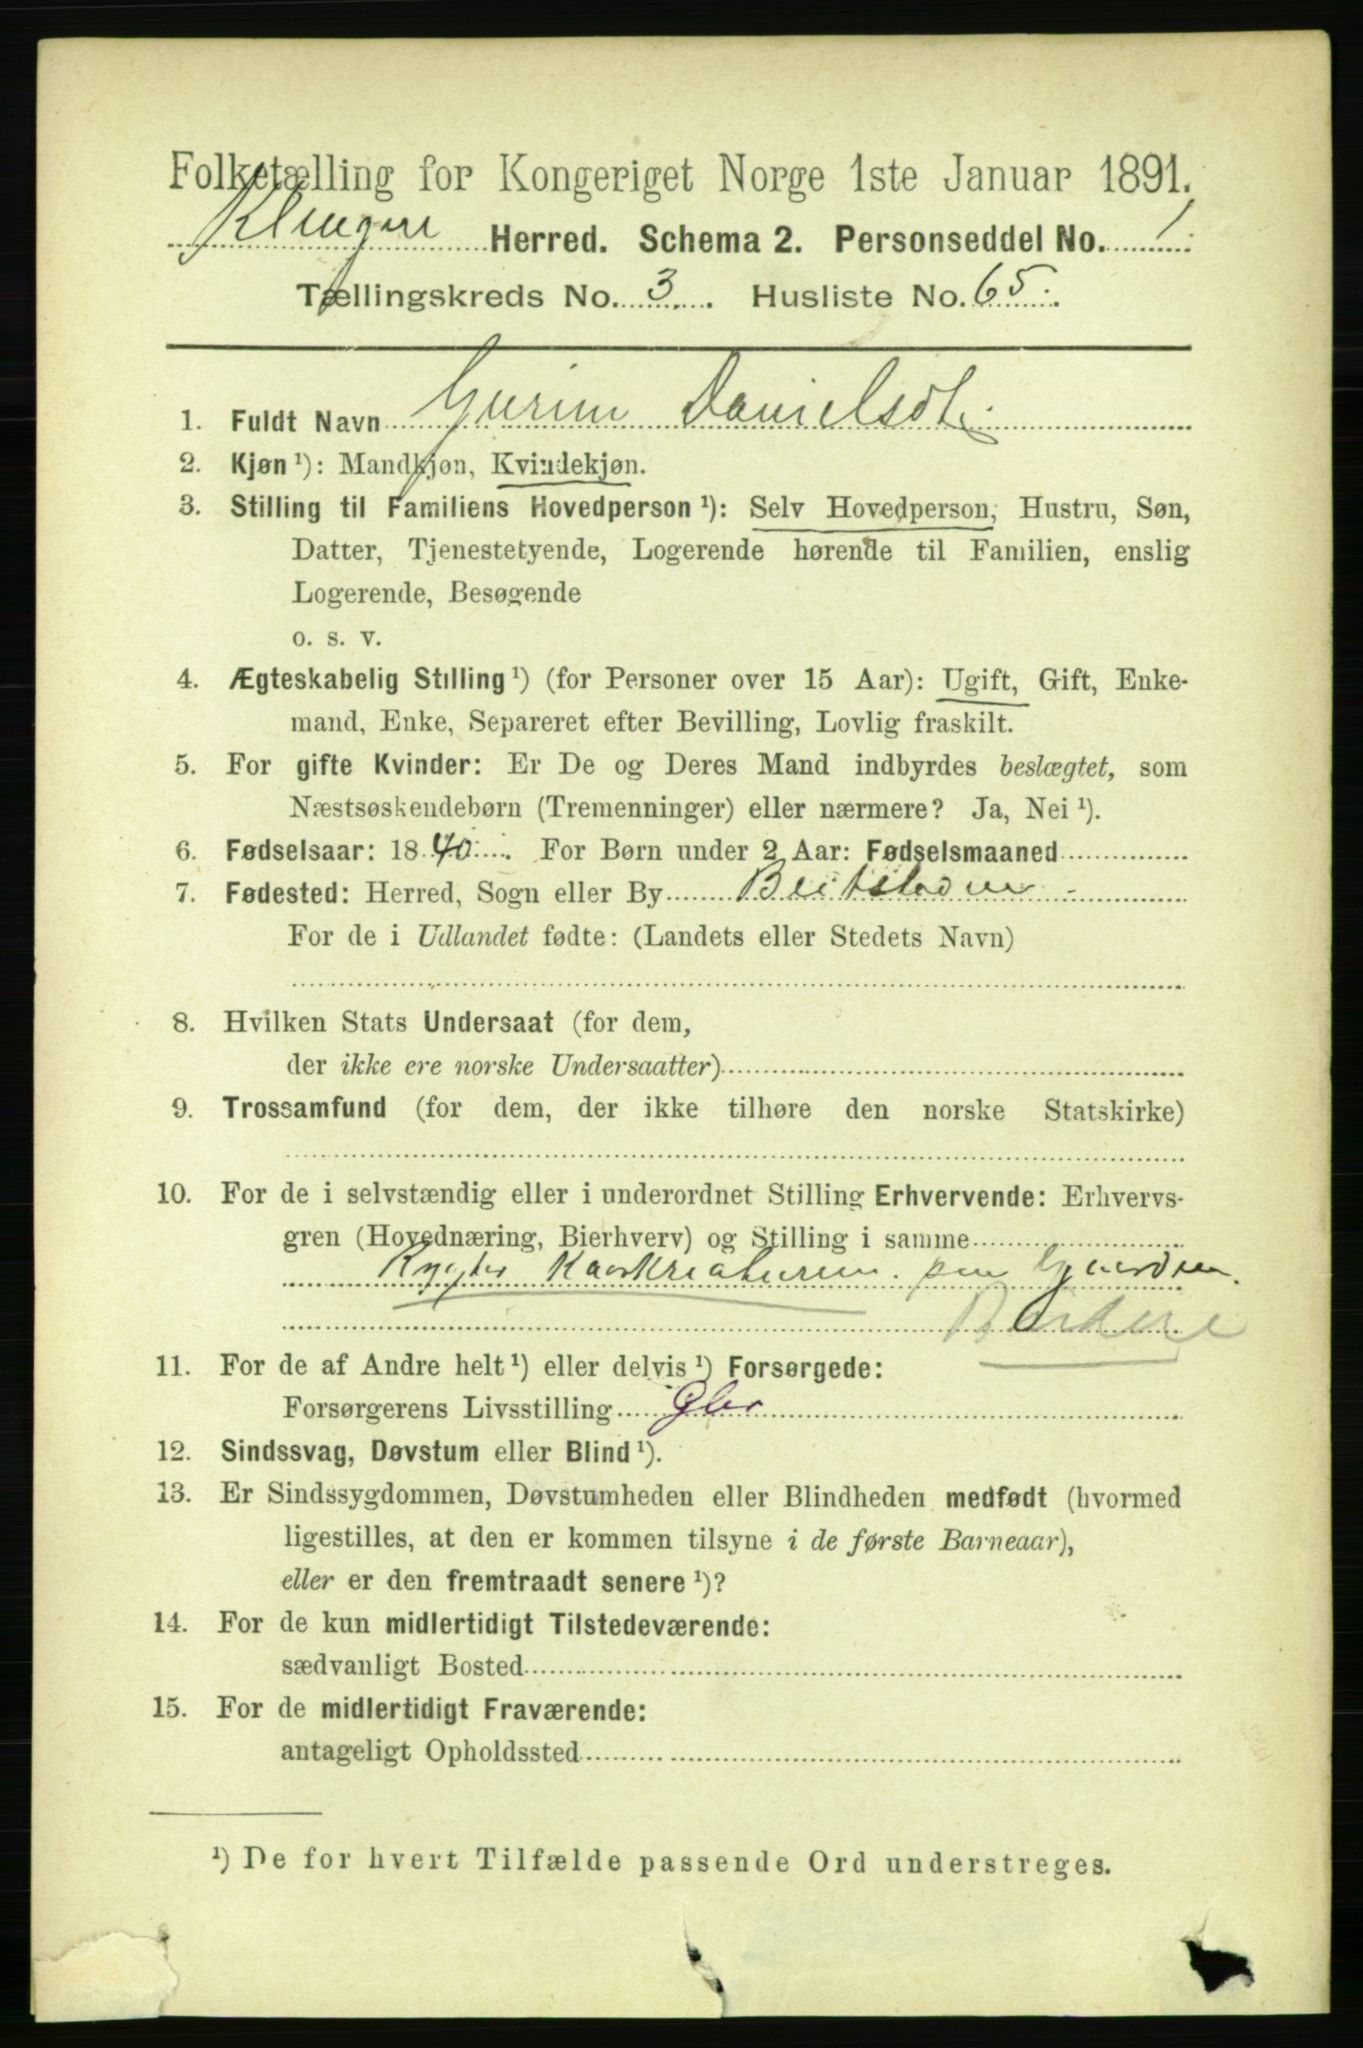 Folketælling for Kongeriget Norge 1ste Januar 1891.
Klingen Herred. Schema 2. Personseddel No. 1.
Tællingskreds No. 3. Husliste No. 65.
1. Fuldt Navn Gurine Danielsdt.
2. Kjøn ¹): Mandkjøn, Kvindekjøn.
3. Stilling til Familiens Hovedperson ¹): Selv Hovedperson, Hustru, Søn,
Datter, Tjenestetyende, Logerende hørende til Familien, enslig
Logerende, Besøgende
o. s. v.
4. Ægteskabelig Stilling ¹) (for Personer over 15 Aar): Ugift, Gift, Enke-
mand, Enke, Separeret efter Bevilling, Lovlig fraskilt.
5. For gifte Kvinder: Er De og Deres Mand indbyrdes beslægtet, som
Næstsøskendebørn (Tremenninger) eller nærmere? Ja, Nei ¹).
6. Fødselsaar: 1840. For Børn under 2 Aar: Fødselsmaaned
7. Fødested: Herred, Sogn eller By Beitstaden
For de i Udlandet fødte: (Landets eller Stedets Navn)
8. Hvilken Stats Undersaat (for dem,
der ikke ere norske Undersaatter)
9. Trossamfund (for dem, der ikke tilhøre den norske Statskirke)
10. For de i selvstændig eller i underordnet Stilling Erhvervende: Erhvervs-
gren (Hovednæring, Bierhverv) og Stilling i samme
Kreaturene paa Gaarden.
11. For de af Andre helt ¹) eller delvis ¹) Forsørgede:
Forsørgerens Livsstilling
12. Sindssvag, Døvstum eller Blind ¹).
13. Er Sindssygdommen, Døvstumheden eller Blindheden medfødt (hvormed
ligestilles, at den er kommen tilsyne i de første Barneaar),
eller er den fremtraadt senere ¹)?
14. For de kun midlertidigt Tilstedeværende:
sædvanligt Bosted
15. For de midlertidigt Fraværende:
antageligt Opholdssted
¹) De for hvert Tilfælde passende Ord understreges.